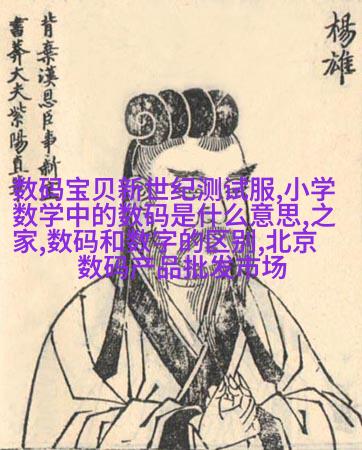 楊雄
背棄漢恩臣事新
書莽大夫紫陽直
数码宝贝新世纪测试服,小学
数学中的数码是什么意思,之
家,数码和数字的区别,北京
数码产品批发市场